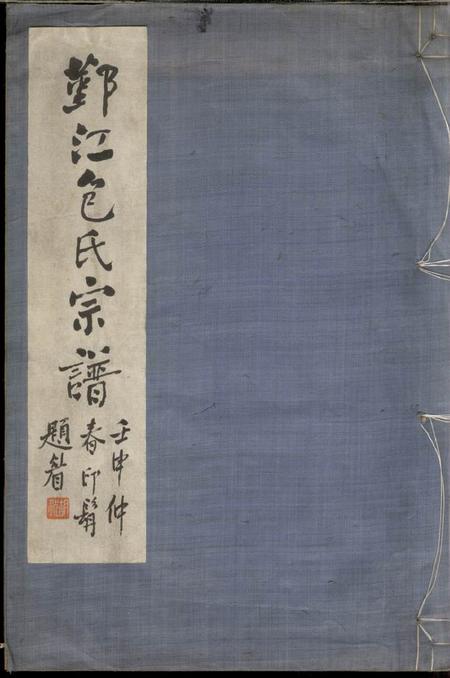 鄞江包氏宗譜
壬申仲
春印鬍
題眷